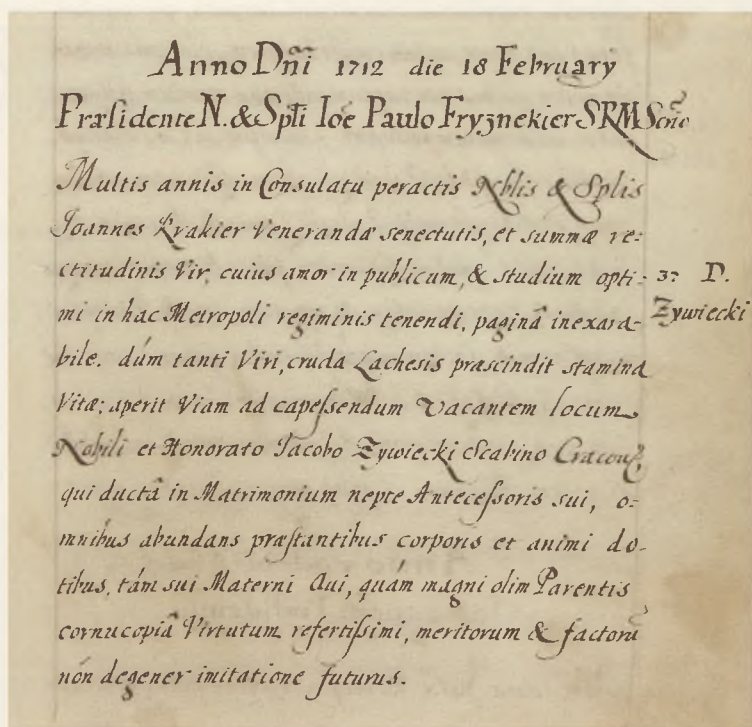 Anno Dñi 1712 die 18 February
Præsidente N. & Splĩ Ioẽ Paulo Fryznekier SRM Scrio
Multis annis in Consulatu peractis Nblis & Splis
Joannes Krakier Venerandæ senectutis, et summæ re:
ctitudinis Vir, cuius amor in publicum, & studium opti:
mi in hac Metropoli regiminis tenendi, paginâ inexara-
bile. dúm tanti Viri, cruda Lachesis præscindit stamina
Vitæ; aperit Viam ad capessendum vacantem locum
Nobili et Honorato Jacobo Zywiecki Scabino Cracou
qui ductâ in Matrimonium nepte Antecessoris sui, o:
mnibus abundans præstantibus corporis et animi do-
tibus, tám sui Materni Aui, quám magni olim Parentis
cornucopiâ Virtutum refertissimi, meritorum & factorũ
nón degener imitatione futurus.
3: D.
Zywiecki